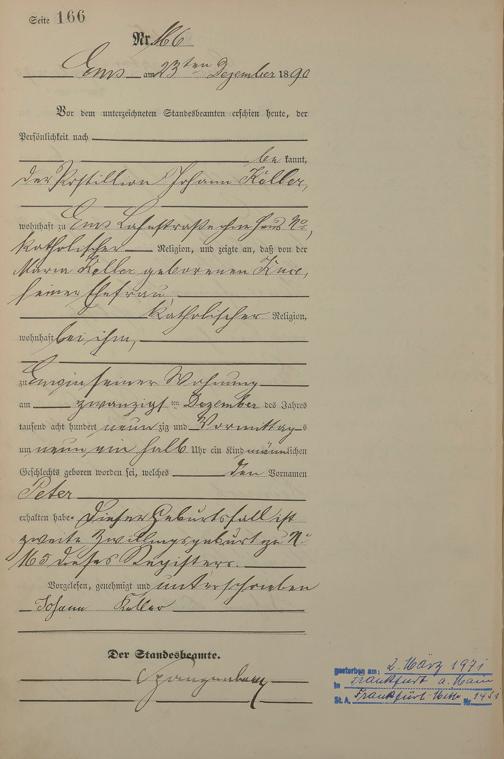 Seite 166
Nr. 166
Ems am 23ten Dezember 1890
Vor dem unterzeichneten Standesbeamten erschien heute, der
Persönlichkeit nach
be kannt,
der Postillion Johann Köller,
wohnhaft zu Ems Lahnstraße ohne Haus No,
katholischer Religion, und zeigte an, daß von der
Maria Köller geborenen
seiner Ehefrau,
katholischer Religion,
wohnhaft bei ihm,
zu Ems in seiner Wohnung
am zwanzigsten Dezember des Jahres
tausend acht hundert neun zig und Vormittags
um neun ein halb Uhr ein Kind männlichen
Geschlechts geboren worden sei, welches den Vornamen
Peter
erhalten habe. Dieser Geburtsfall ist
zweite Zwillingsgeburt zu No
165 dieses Registers.
Vorgelesen, genehmigt und unterschrieben
Johann Köller
Der Standesbeamte.
Spangenberg
gestorben am: 2. März 1971
in Frankfurt a. Main
St. A. Frankfurt Mitte Nr.